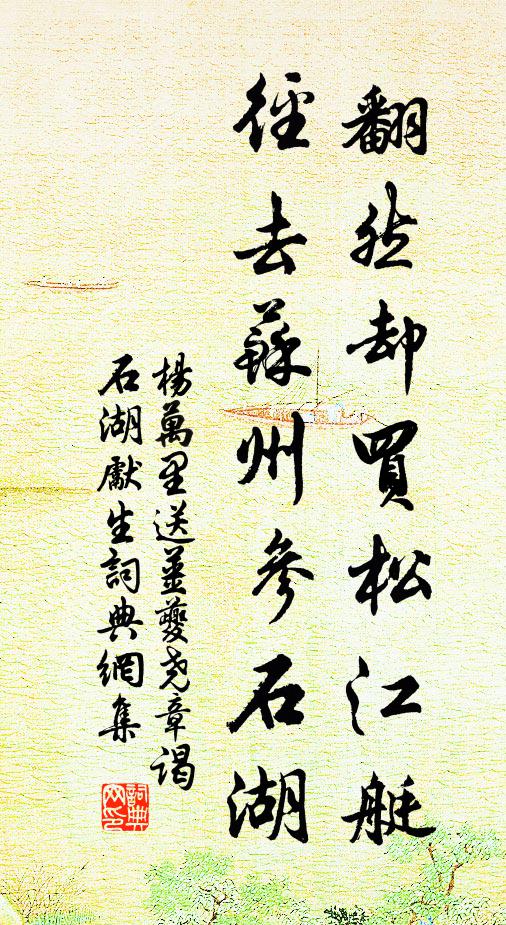 翻然却買松江艇
徑去蘇州參石湖
楊萬里送姜夔堯章謁
石湖獻生詞典網集
詞典网印